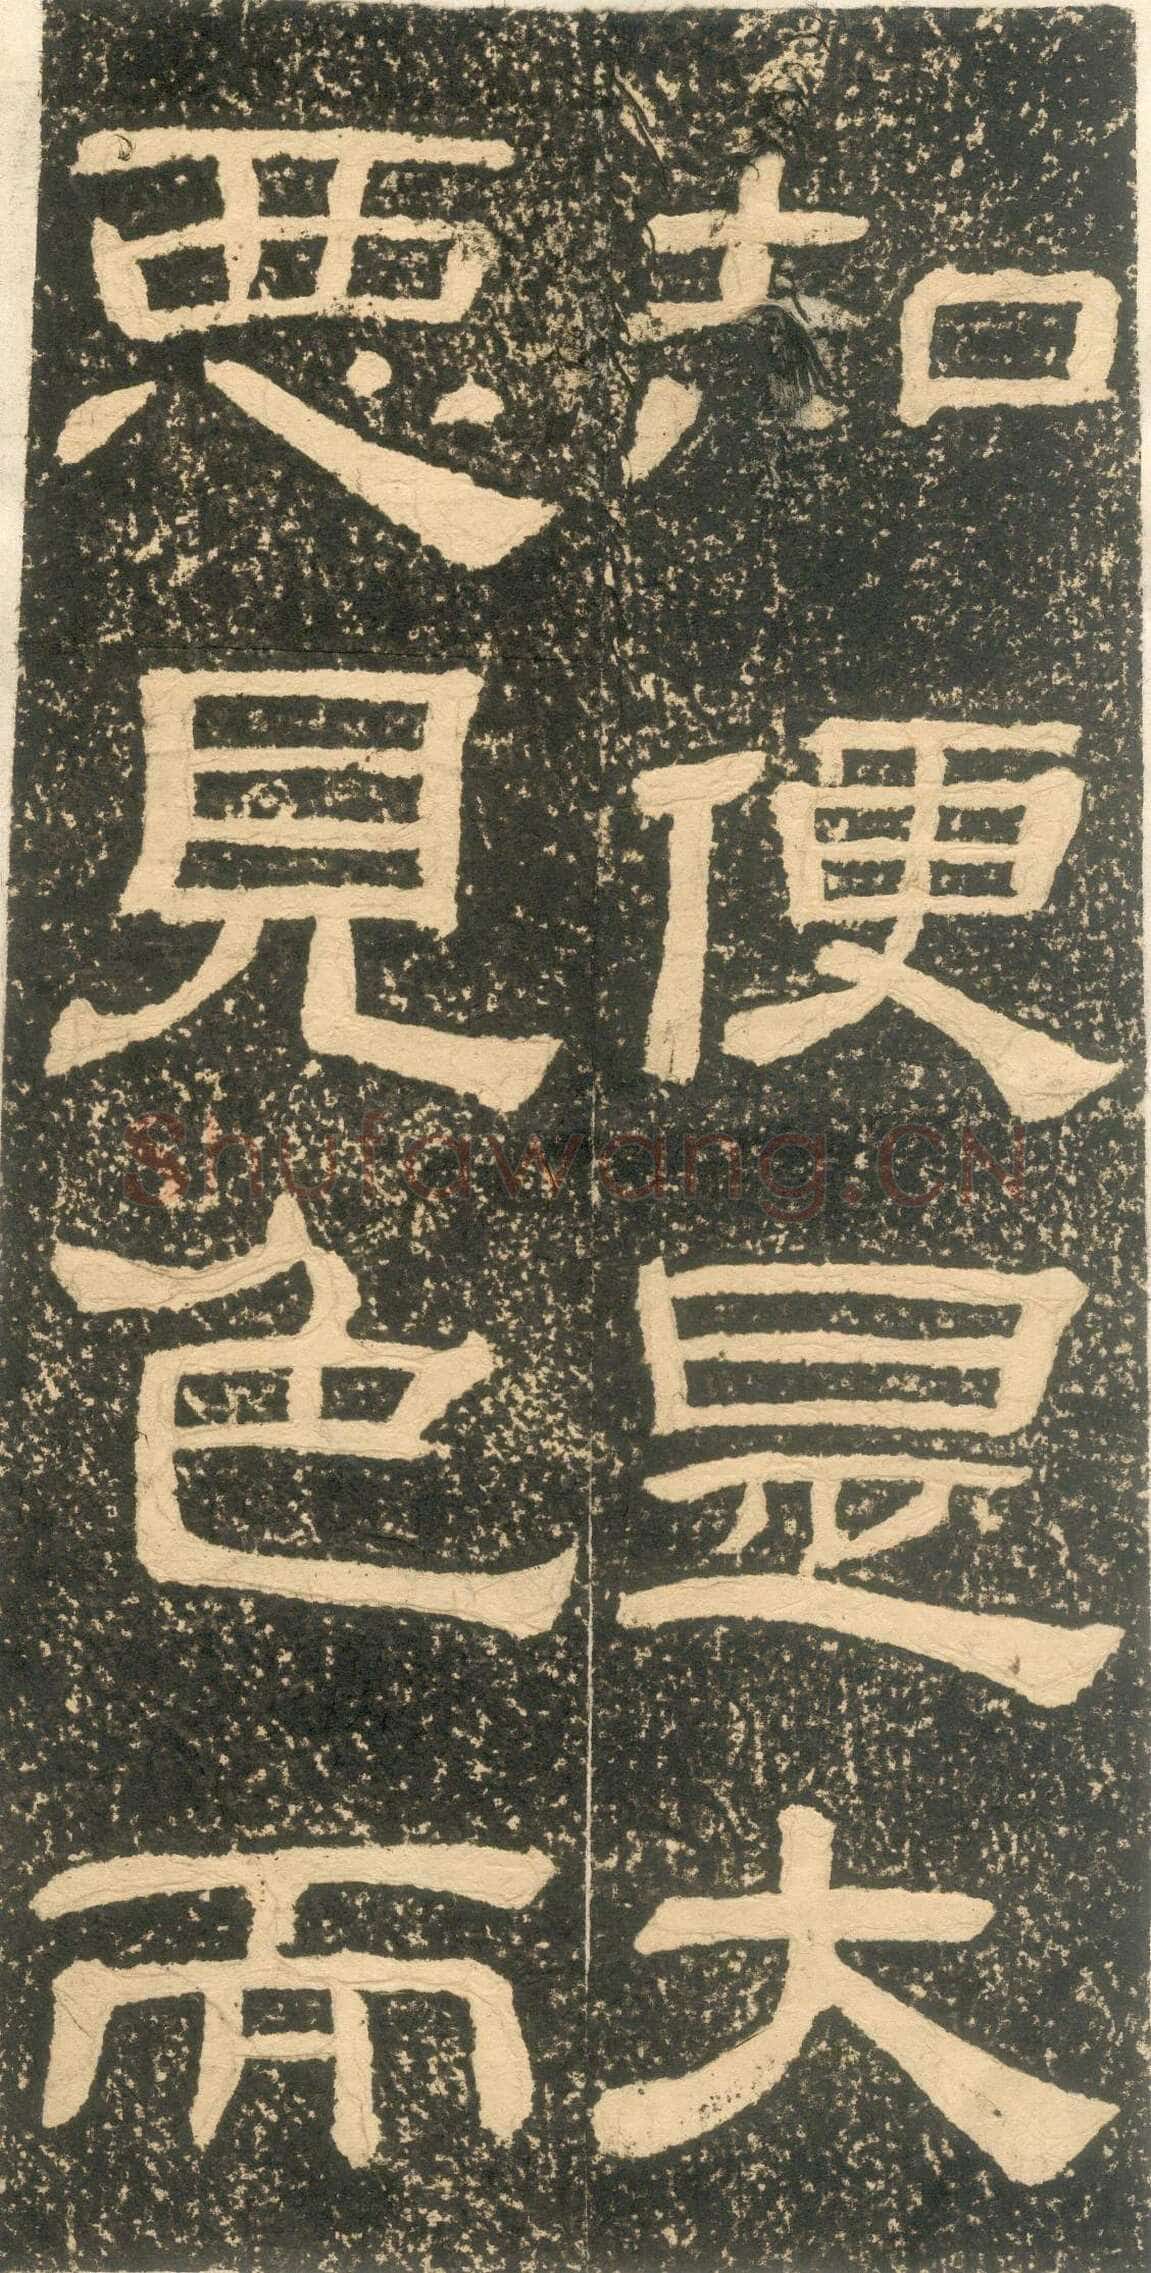 知便是大
惡見色而
Shufawang.CN